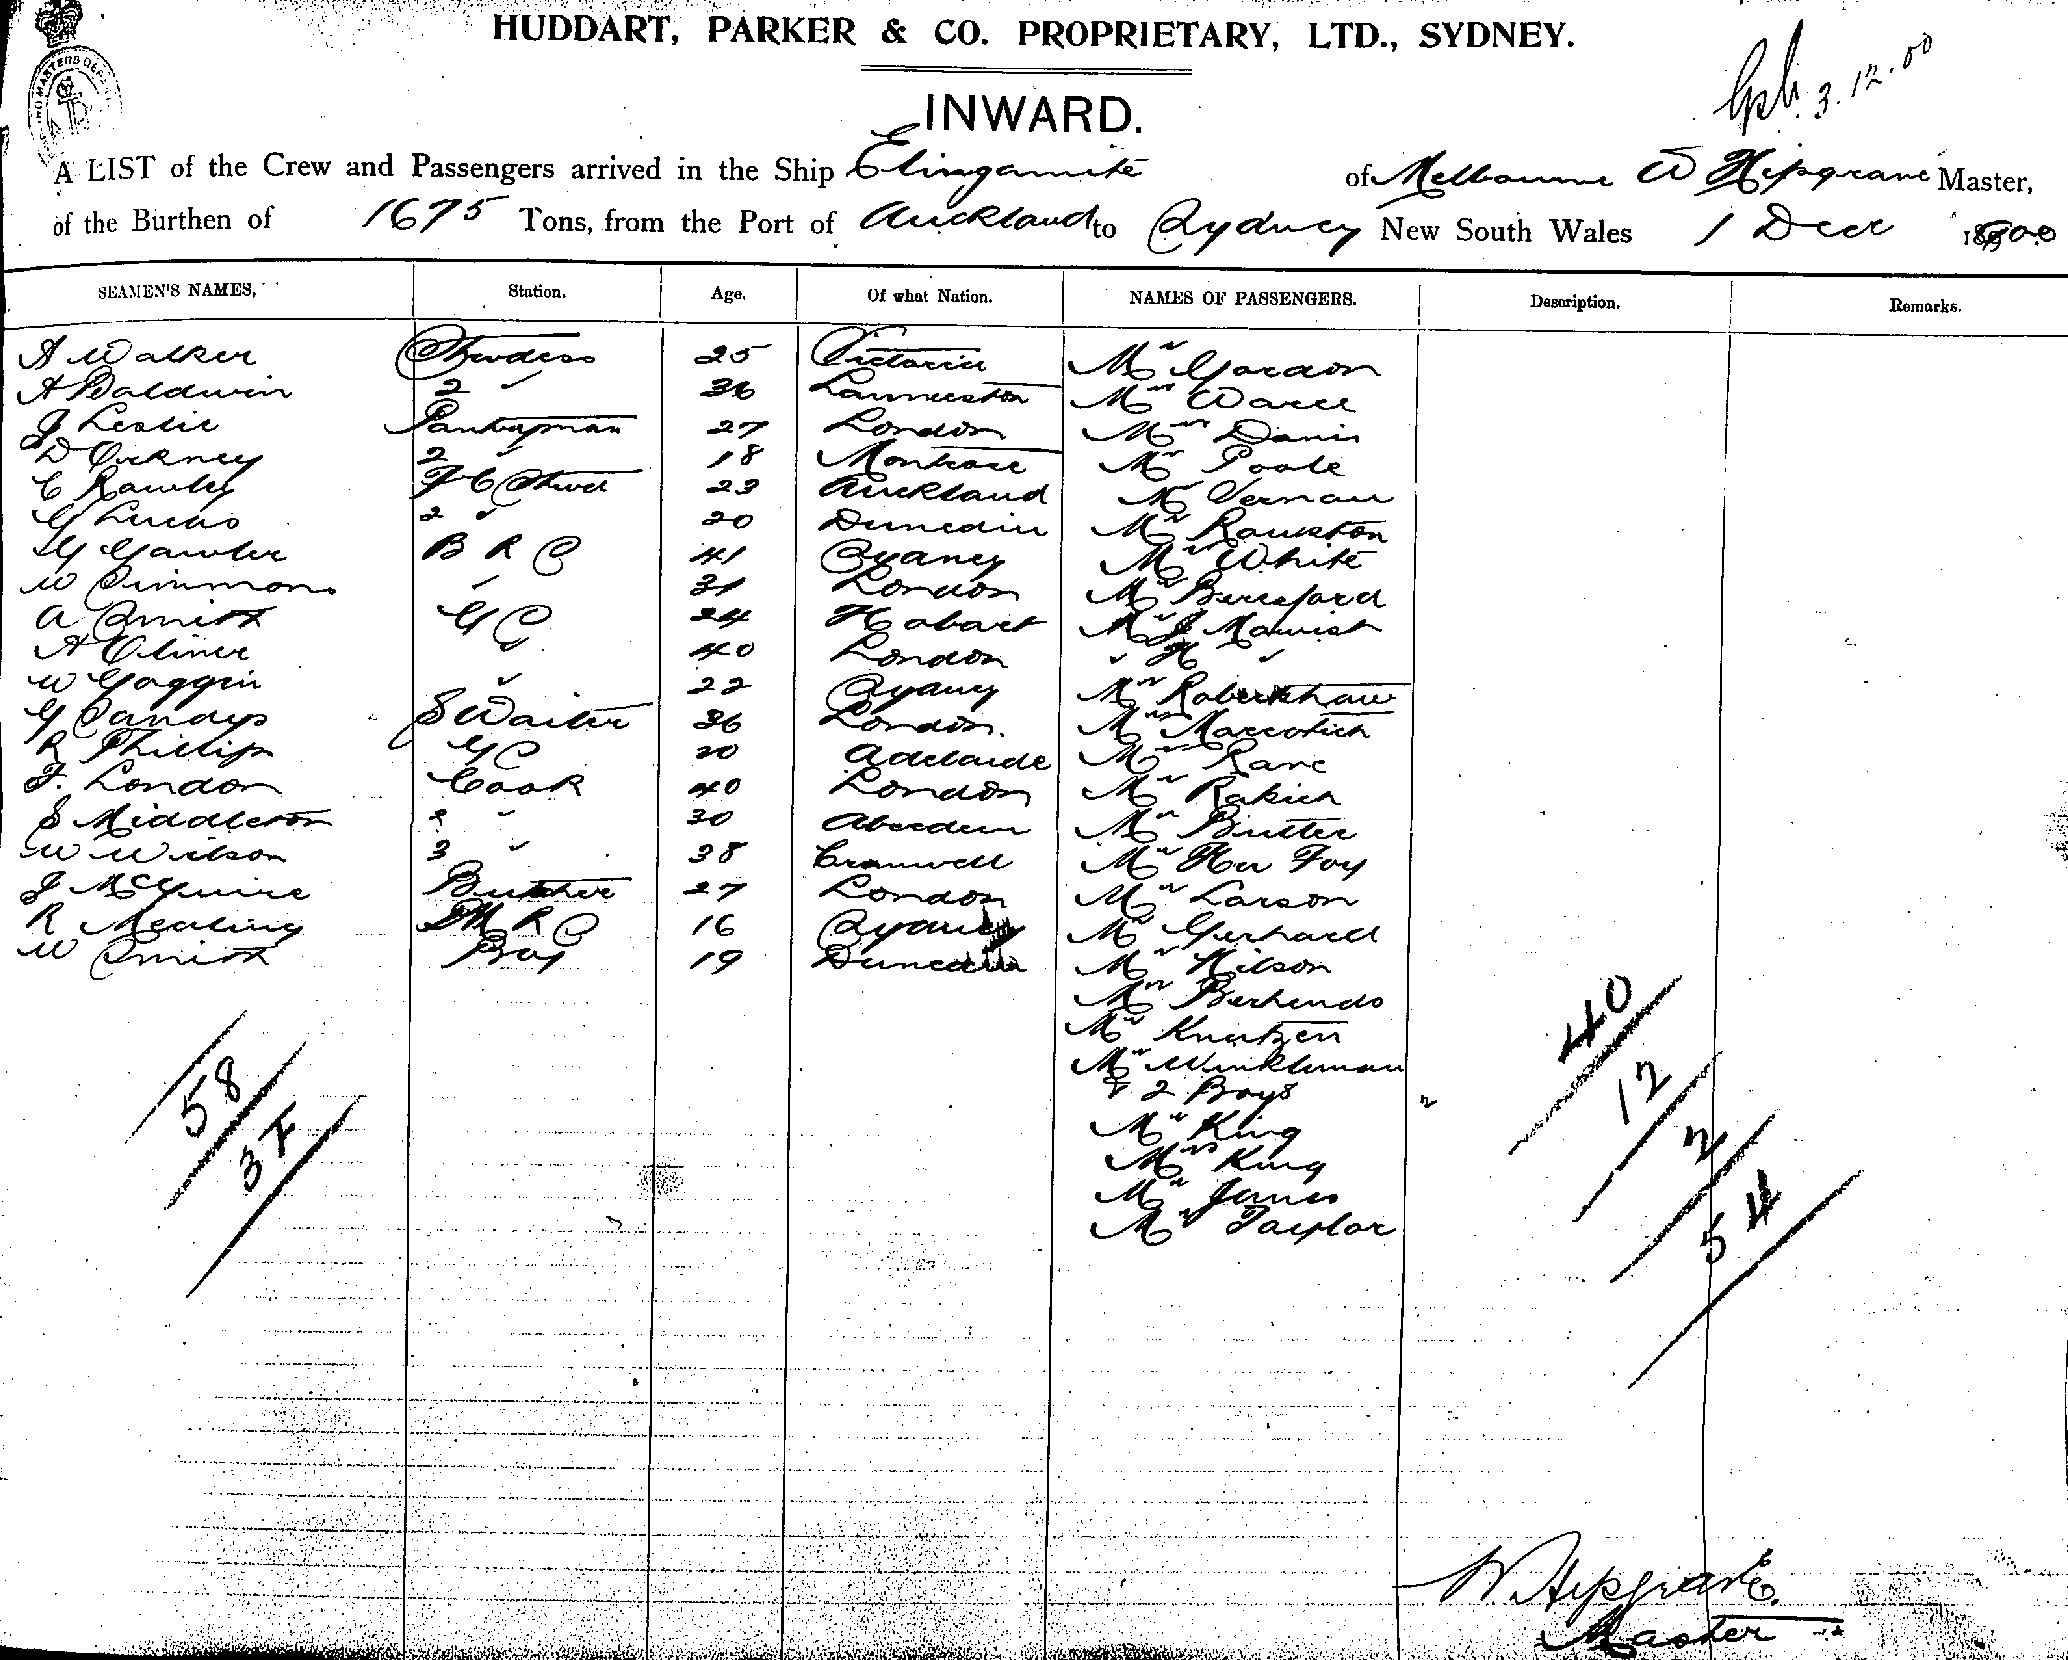 HUDDART, PARKER & CO. PROPRIETARY, LTD., SYDNEY.
3.12.00
INWARD.
A LIST of the Crew and Passengers arrived in the Ship Elingamite of Melbourne W Hipgrave Master,
of the Burthen of 1675 Tons, from the Port of Auckland to Sydney New South Wales 1 Dec 1900
SEAMEN'S NAMES, Station. Age. Of what Nation. NAMES OF PASSENGERS. Description. Remarks.
A Walker Stewdess 25 Victoria Mr Gordon
A Baldwin 2 " 36 Launceston Mrs Ware
J Leslie Pantryman 27 London Mrs Davis
D Orkney 2 " 18 Montrose Mr Poole
C Rawley F C Stwd 23 Auckland Mr Vernau
G Lucas 2 " 20 Dunedin Mr
G Gawler B R S 41 Sydney Mr White
W Simmons " 31 London Mr Beresford
A Smith G S 24 Hobart Mr J
A Oliver 40 London " H "
W Goggin " 22 Sydney Mr Robertshaw
G Sandys S Waiter 36 London. Mrs
R Phillips G S 20 Adelaide Mrs Rane
F. London Cook 40 London Mr Rakich
S Middleton 2 " 30 Aberdeen Mr
W Wilson 3 " 38 Cromwell Mr Foy
J McGuire Butcher 27 London Mr Larson
R Mealing M R S 16 Sydney Mr Gerhard
W Smith Boy 19 Dunedin Mr Wilson
Mr
Mr Knutzen
Mr Winkleman
& 2 Boys 2
Mr King
Mrs King
Mr Jones
Mr Taylor
58
37
40
12
2
54
W. Hipgrave.
Master